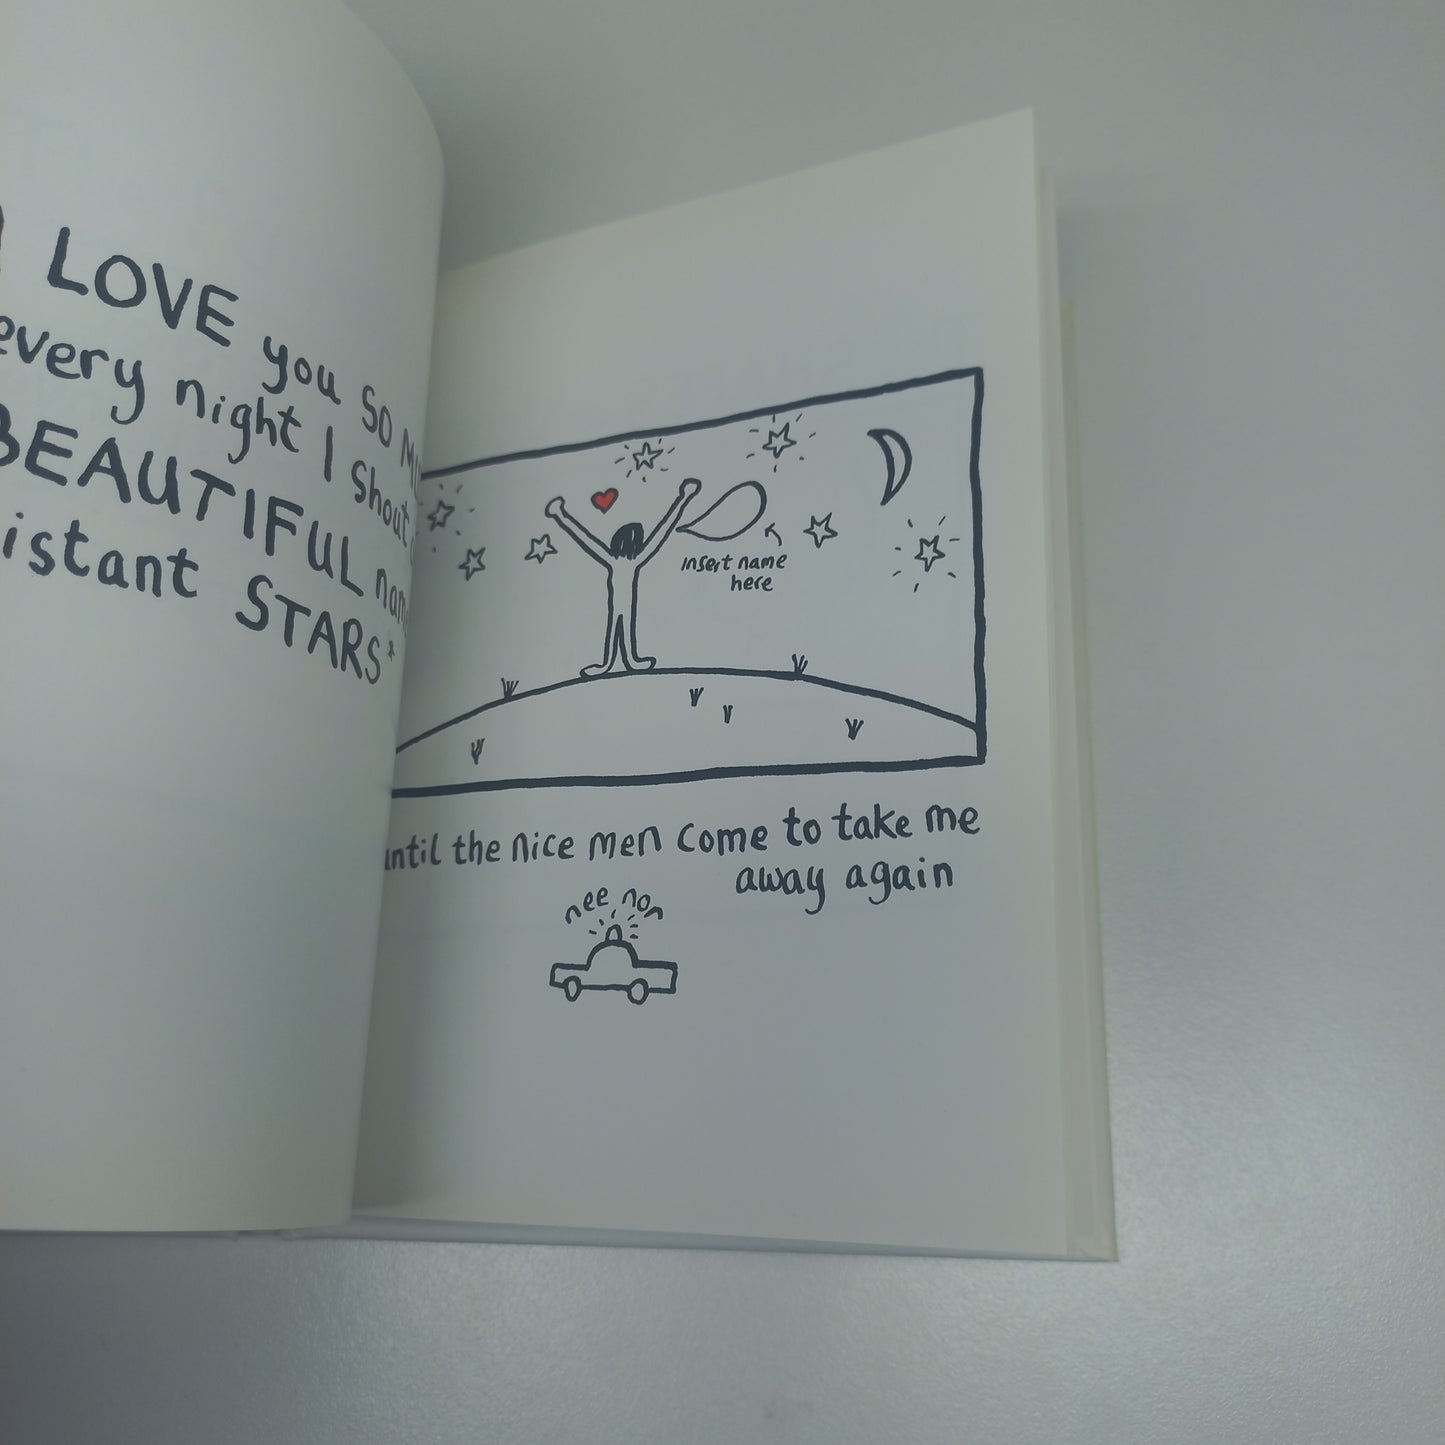 I LOVE you SO
every night I shout
BEAUTIFUL
STARS*
insert name
here
until the nice men come to take me
away again
nee nor